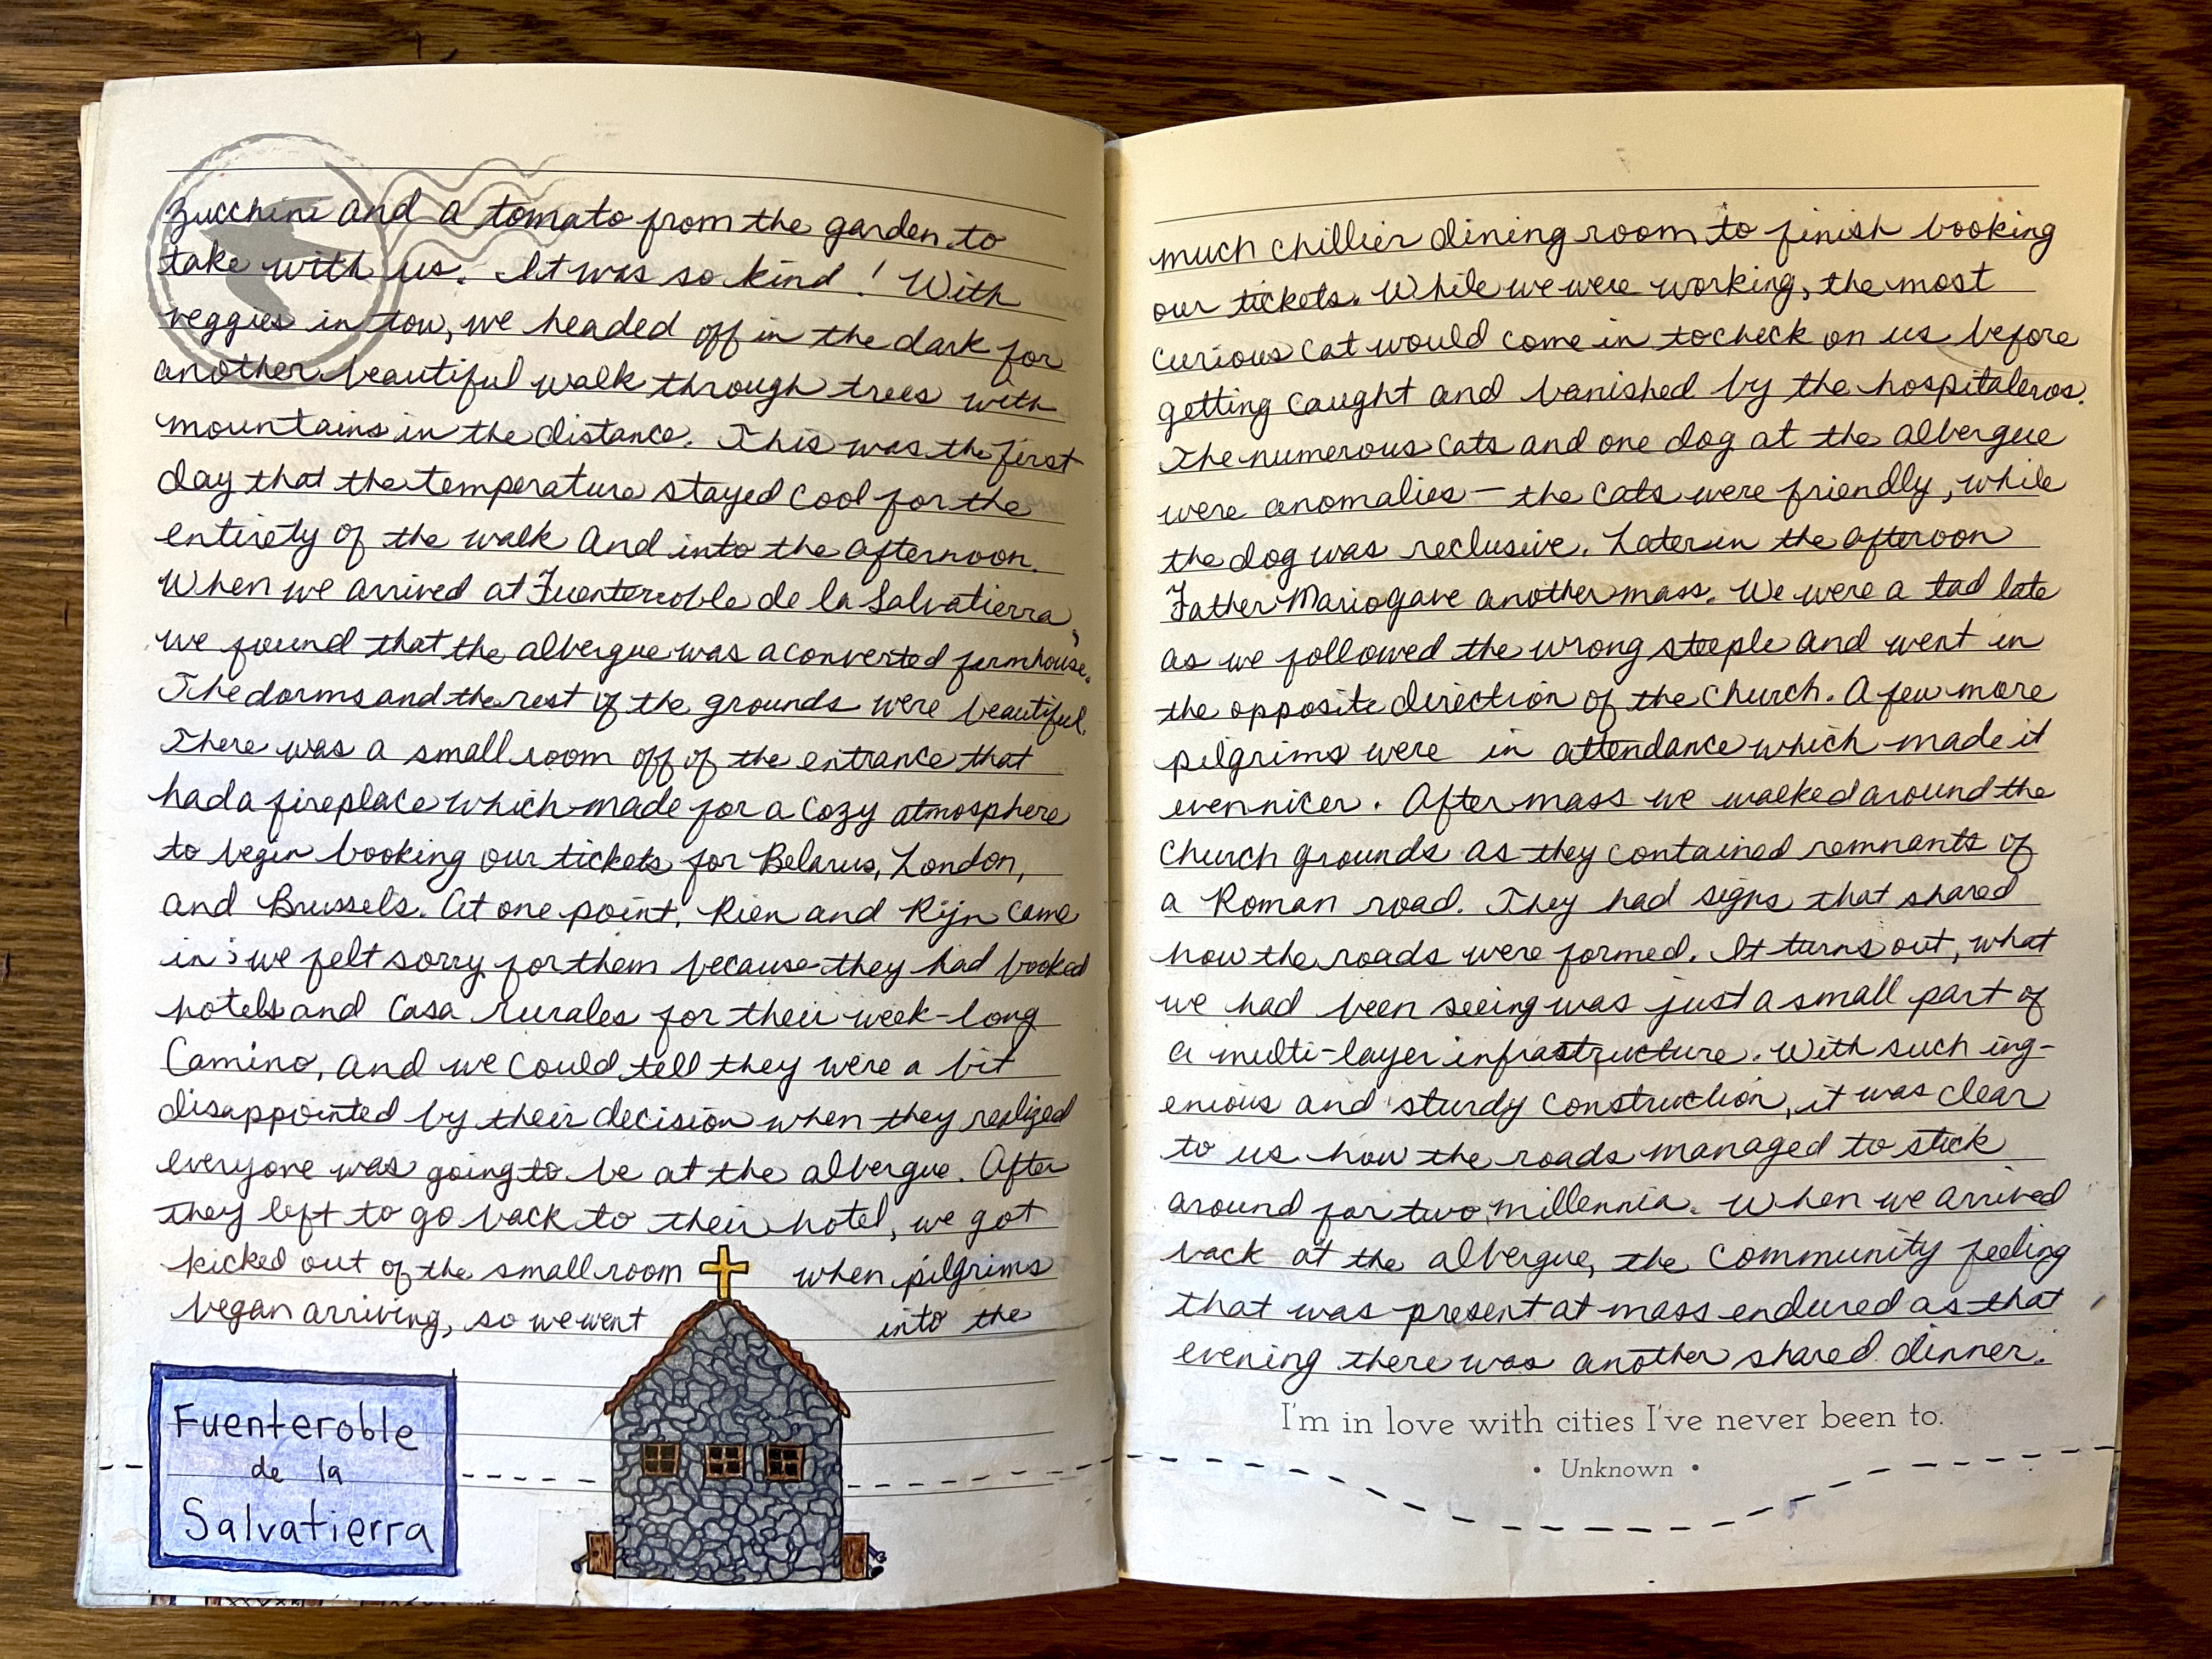 zucchini and a tomato from the garden to
take with us. It was so kind! With
veggies in tow, we headed off in the dark for
another beautiful walk through trees with
mountains in the distance. This was the first
day that the temperature stayed cool for the
entirety of the walk and into the afternoon.
When we arrived at Fuenterroble de la Salvatierra,
we found that the albergue was a converted farmhouse.
The dorms and the rest of the grounds were beautiful.
There was a small room off of the entrance that
had a fireplace which made for a cozy atmosphere
to begin booking our tickets for Belarus, London,
and Brussels. At one point, Rien and Rijn came
in; we felt sorry for them because they had booked
hotels and Casa rurales for their week-long
Camino, and we could tell they were a bit
disappointed by their decision when they realized
everyone was going to be at the albergue. After
they left to go back to their hotel, we got
kicked out of the small room when pilgrims
began arriving, so we went into the
Fuenteroble
de la
Salvatierra
much chillier dining room to finish booking
our tickets. While we were working, the most
curious cat would come in to check on us before
getting caught and banished by the hospitaleros.
The numerous cats and one dog at the albergue
were anomalies – the cats were friendly, while
the dog was reclusive. Later in the afteroon
Father Mario gave another mass. We were a tad late
as we followed the wrong steeple and went in
the opposite direction of the church. A few more
pilgrims were in attendance which made it
even nicer. After mass we walked around the
church grounds as they contained remnants of
a Roman road. They had signs that shared
how the roads were formed. It turns out, what
we had been seeing was just a small part of
a multi-layer infrastructure. With such ing-
enious and sturdy construction, it was clear
to us how the roads managed to stick
around for two millennia. When we arrived
back at the albergue, the community feeling
that was present at mass endured as that
evening there was another shared dinner.
I'm in love with cities I've never been to.
• Unknown •